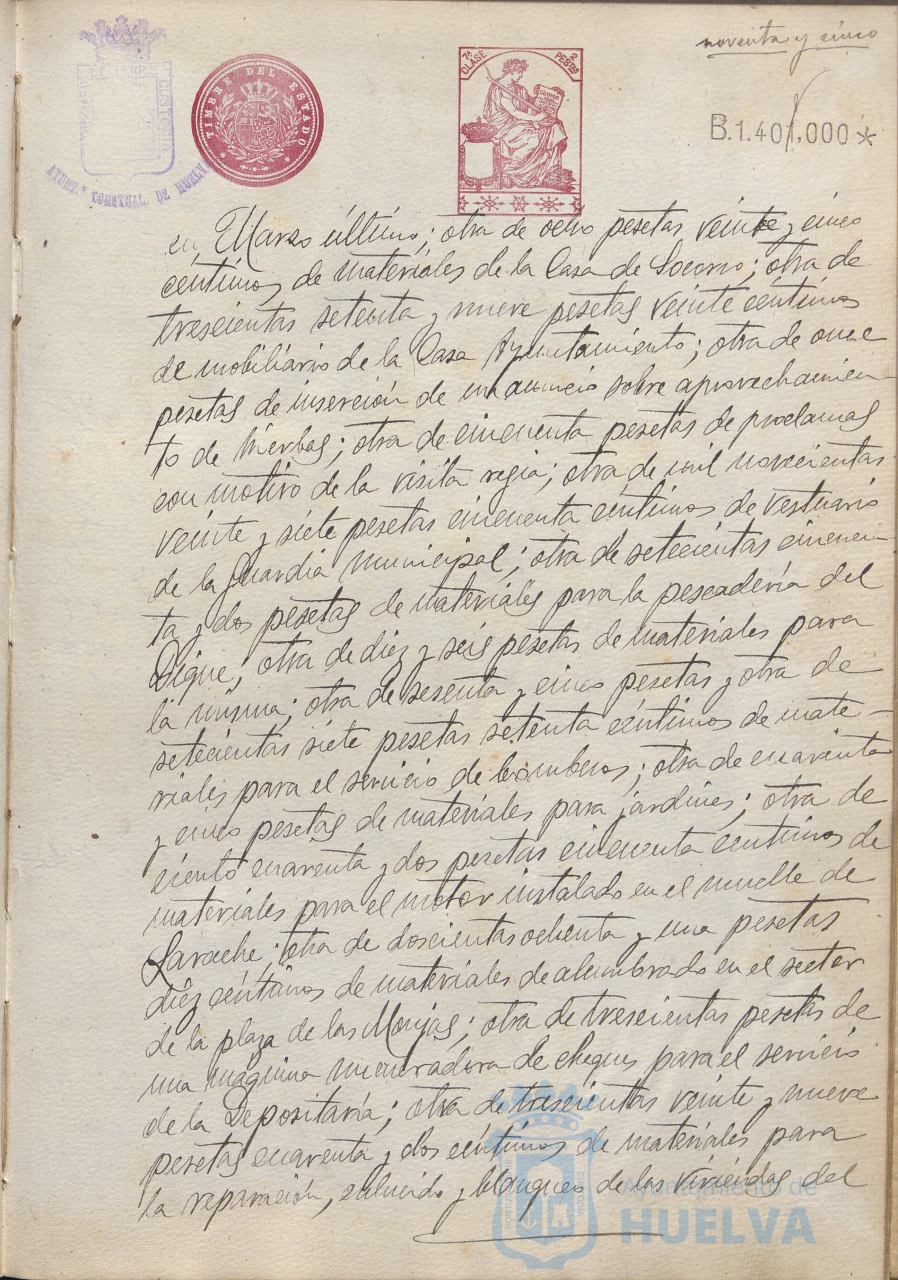 noventa y cinco
AYUNT.º CONSTNAL. DE HUELVA
TIMBRE DEL ESTADO
7ª CLASE
2 PESTAS
B.1.401,000*
en Marzo último; otra de ocho pesetas veinte y cinco
céntimos de materiales de la Casa de Socorro; otra de
trescientas setenta y nueve pesetas veinte céntimos
de mobiliario de la Casa Ayuntamiento; otra de once
pesetas de inserción de un anuncio sobre aprovechamien-
to de hierbas; otra de cincuenta pesetas de proclamas
con motivo de la visita regia; otra de mil novecientas
veinte y siete pesetas cincuenta céntimos de vestuario
de la Guardia Municipal; otra de setecientas cincuen-
ta y dos pesetas de materiales para la pescadería del
Dique; otra de diez y seis pesetas de materiales para
la misma; otra de sesenta y cinco pesetas y otra de
setecientas siete pesetas setenta céntimos de mate-
riales para el servicio de bomberos; otra de cuarenta
y cinco pesetas de materiales para jardines; otra de
ciento cuarenta y dos pesetas cincuenta céntimos de
materiales para el motor instalado en el muelle de
Larache; otra de doscientas ochenta y una pesetas
diez céntimos de materiales de alumbrado en el sector
de la plaza de las Monjas; otra de trescientas pesetas de
una máquina numeradora de cheques para el servicio
de la Depositaría; otra de trescientas veinte y nueve
pesetas cuarenta y dos céntimos de materiales para
la reparación, enlucido y blanqueo de las viviendas del
Ayuntamiento de
HUELVA